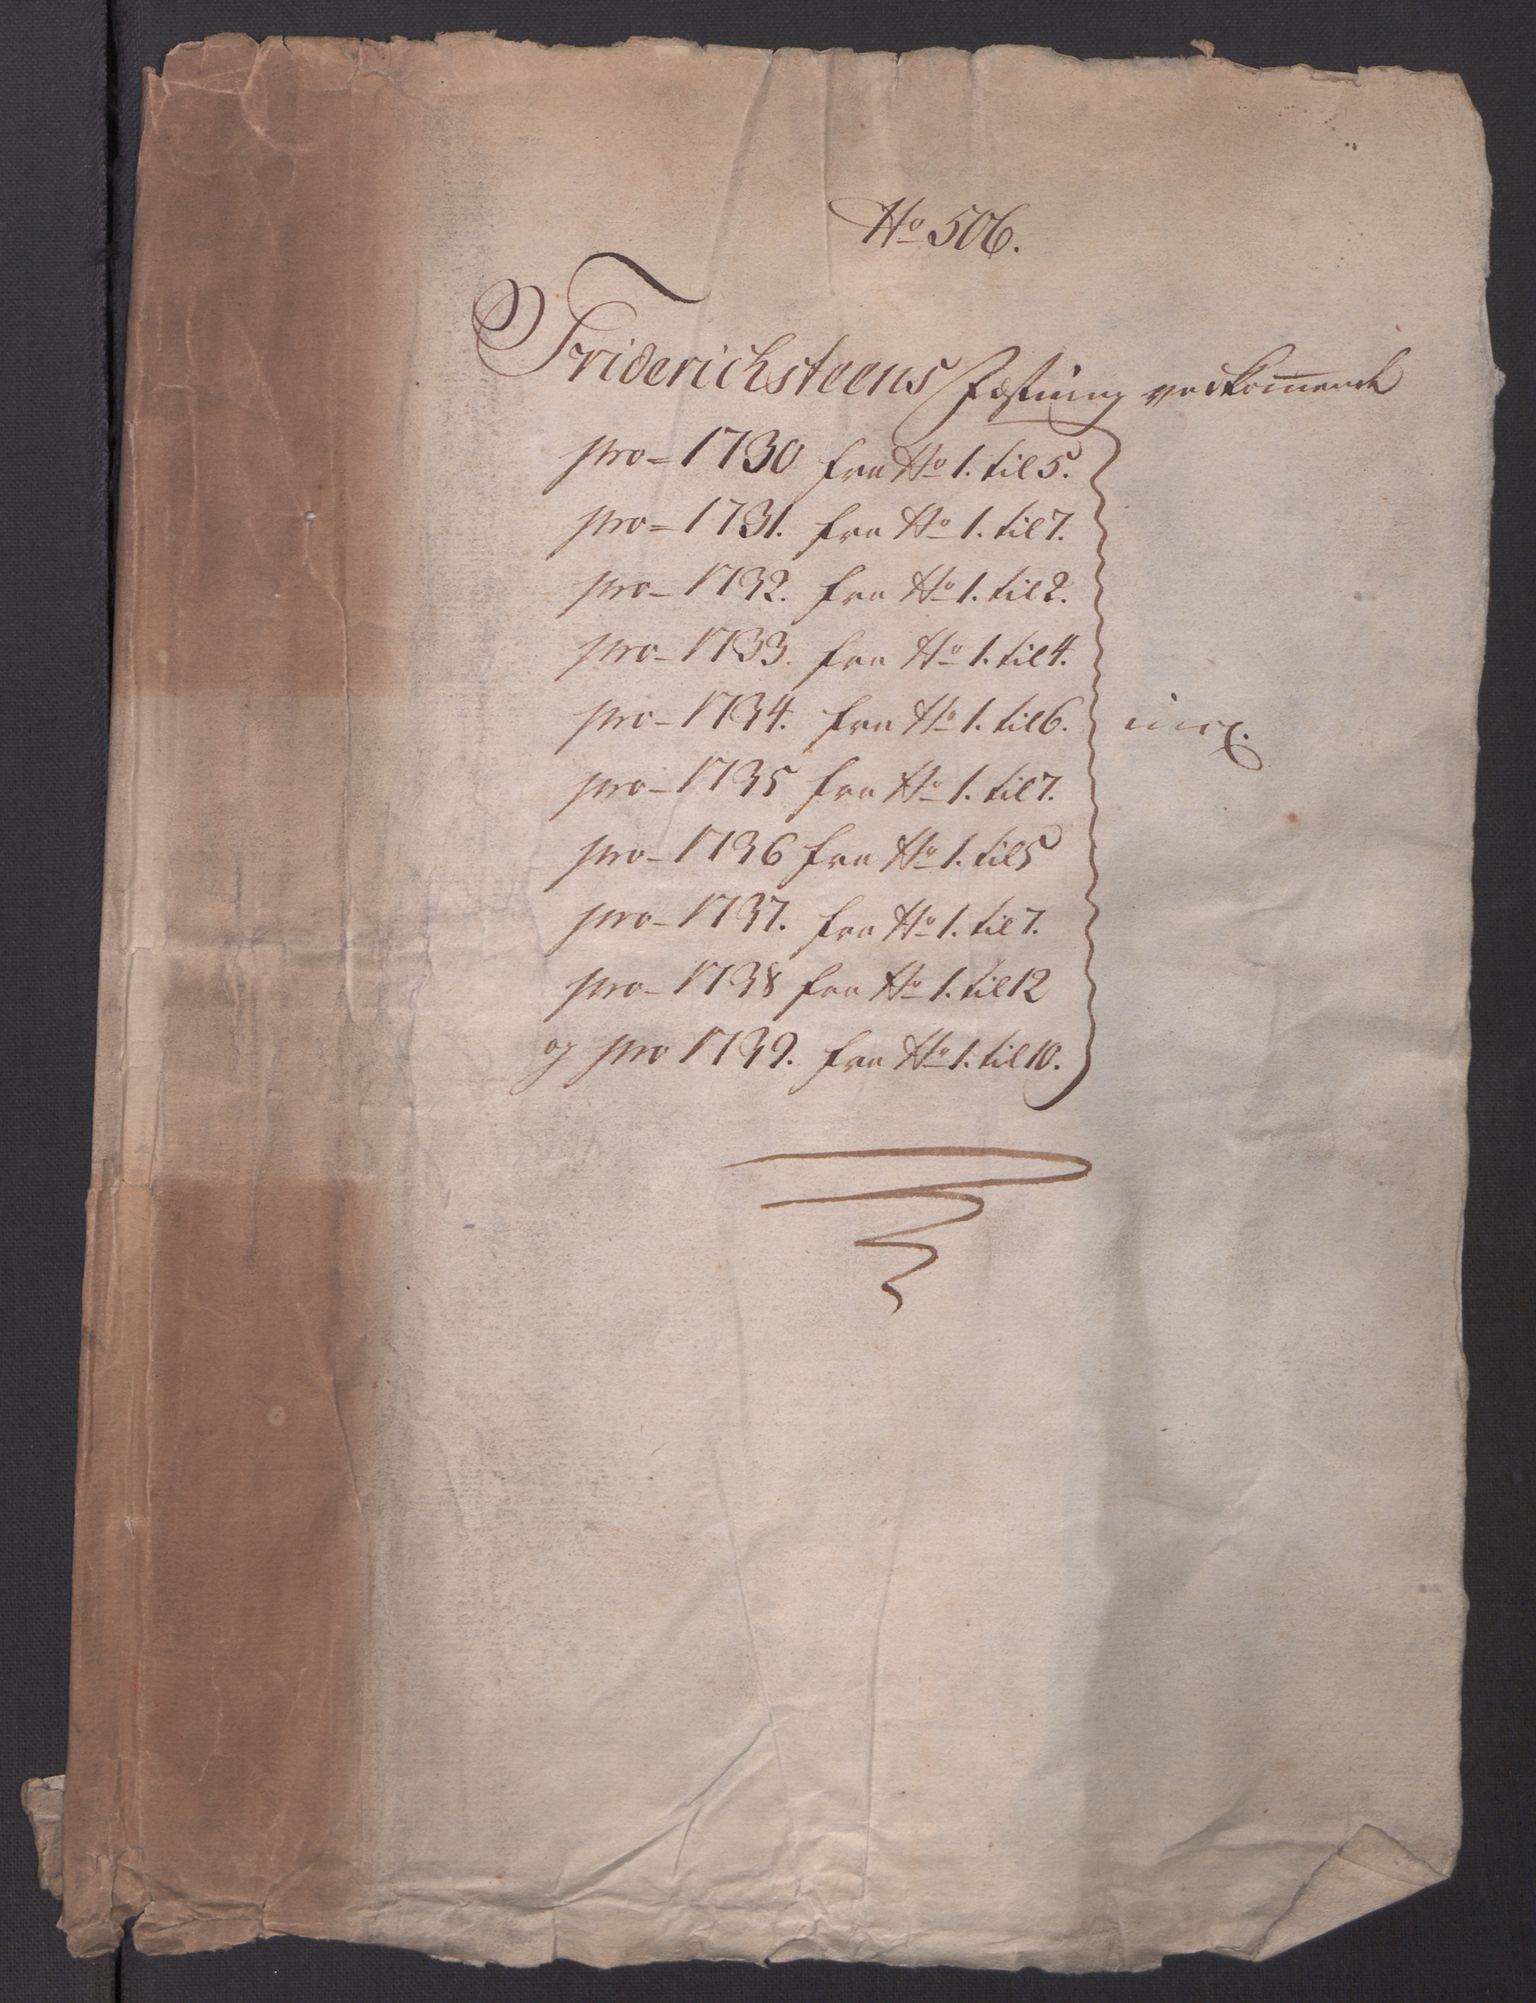 No 506.
Friderichsteens Fæstning vedkommende
pro - 1730 fra No 1. til 5.
pro = 1731. fra No 1. til 7.
pro - 1732. fra No 1. til 2.
pro - 1733. fra No 1. til 4.
pro - 1734. fra No 1. til 6. incl.
pro - 1735 fra No 1. til 7.
pro - 1736 fra No 1. til 5
pro - 1737. fra No 1. til 7.
pro - 1738 fra No 1. til 12
og pro 1739. fra No 1. til 10.